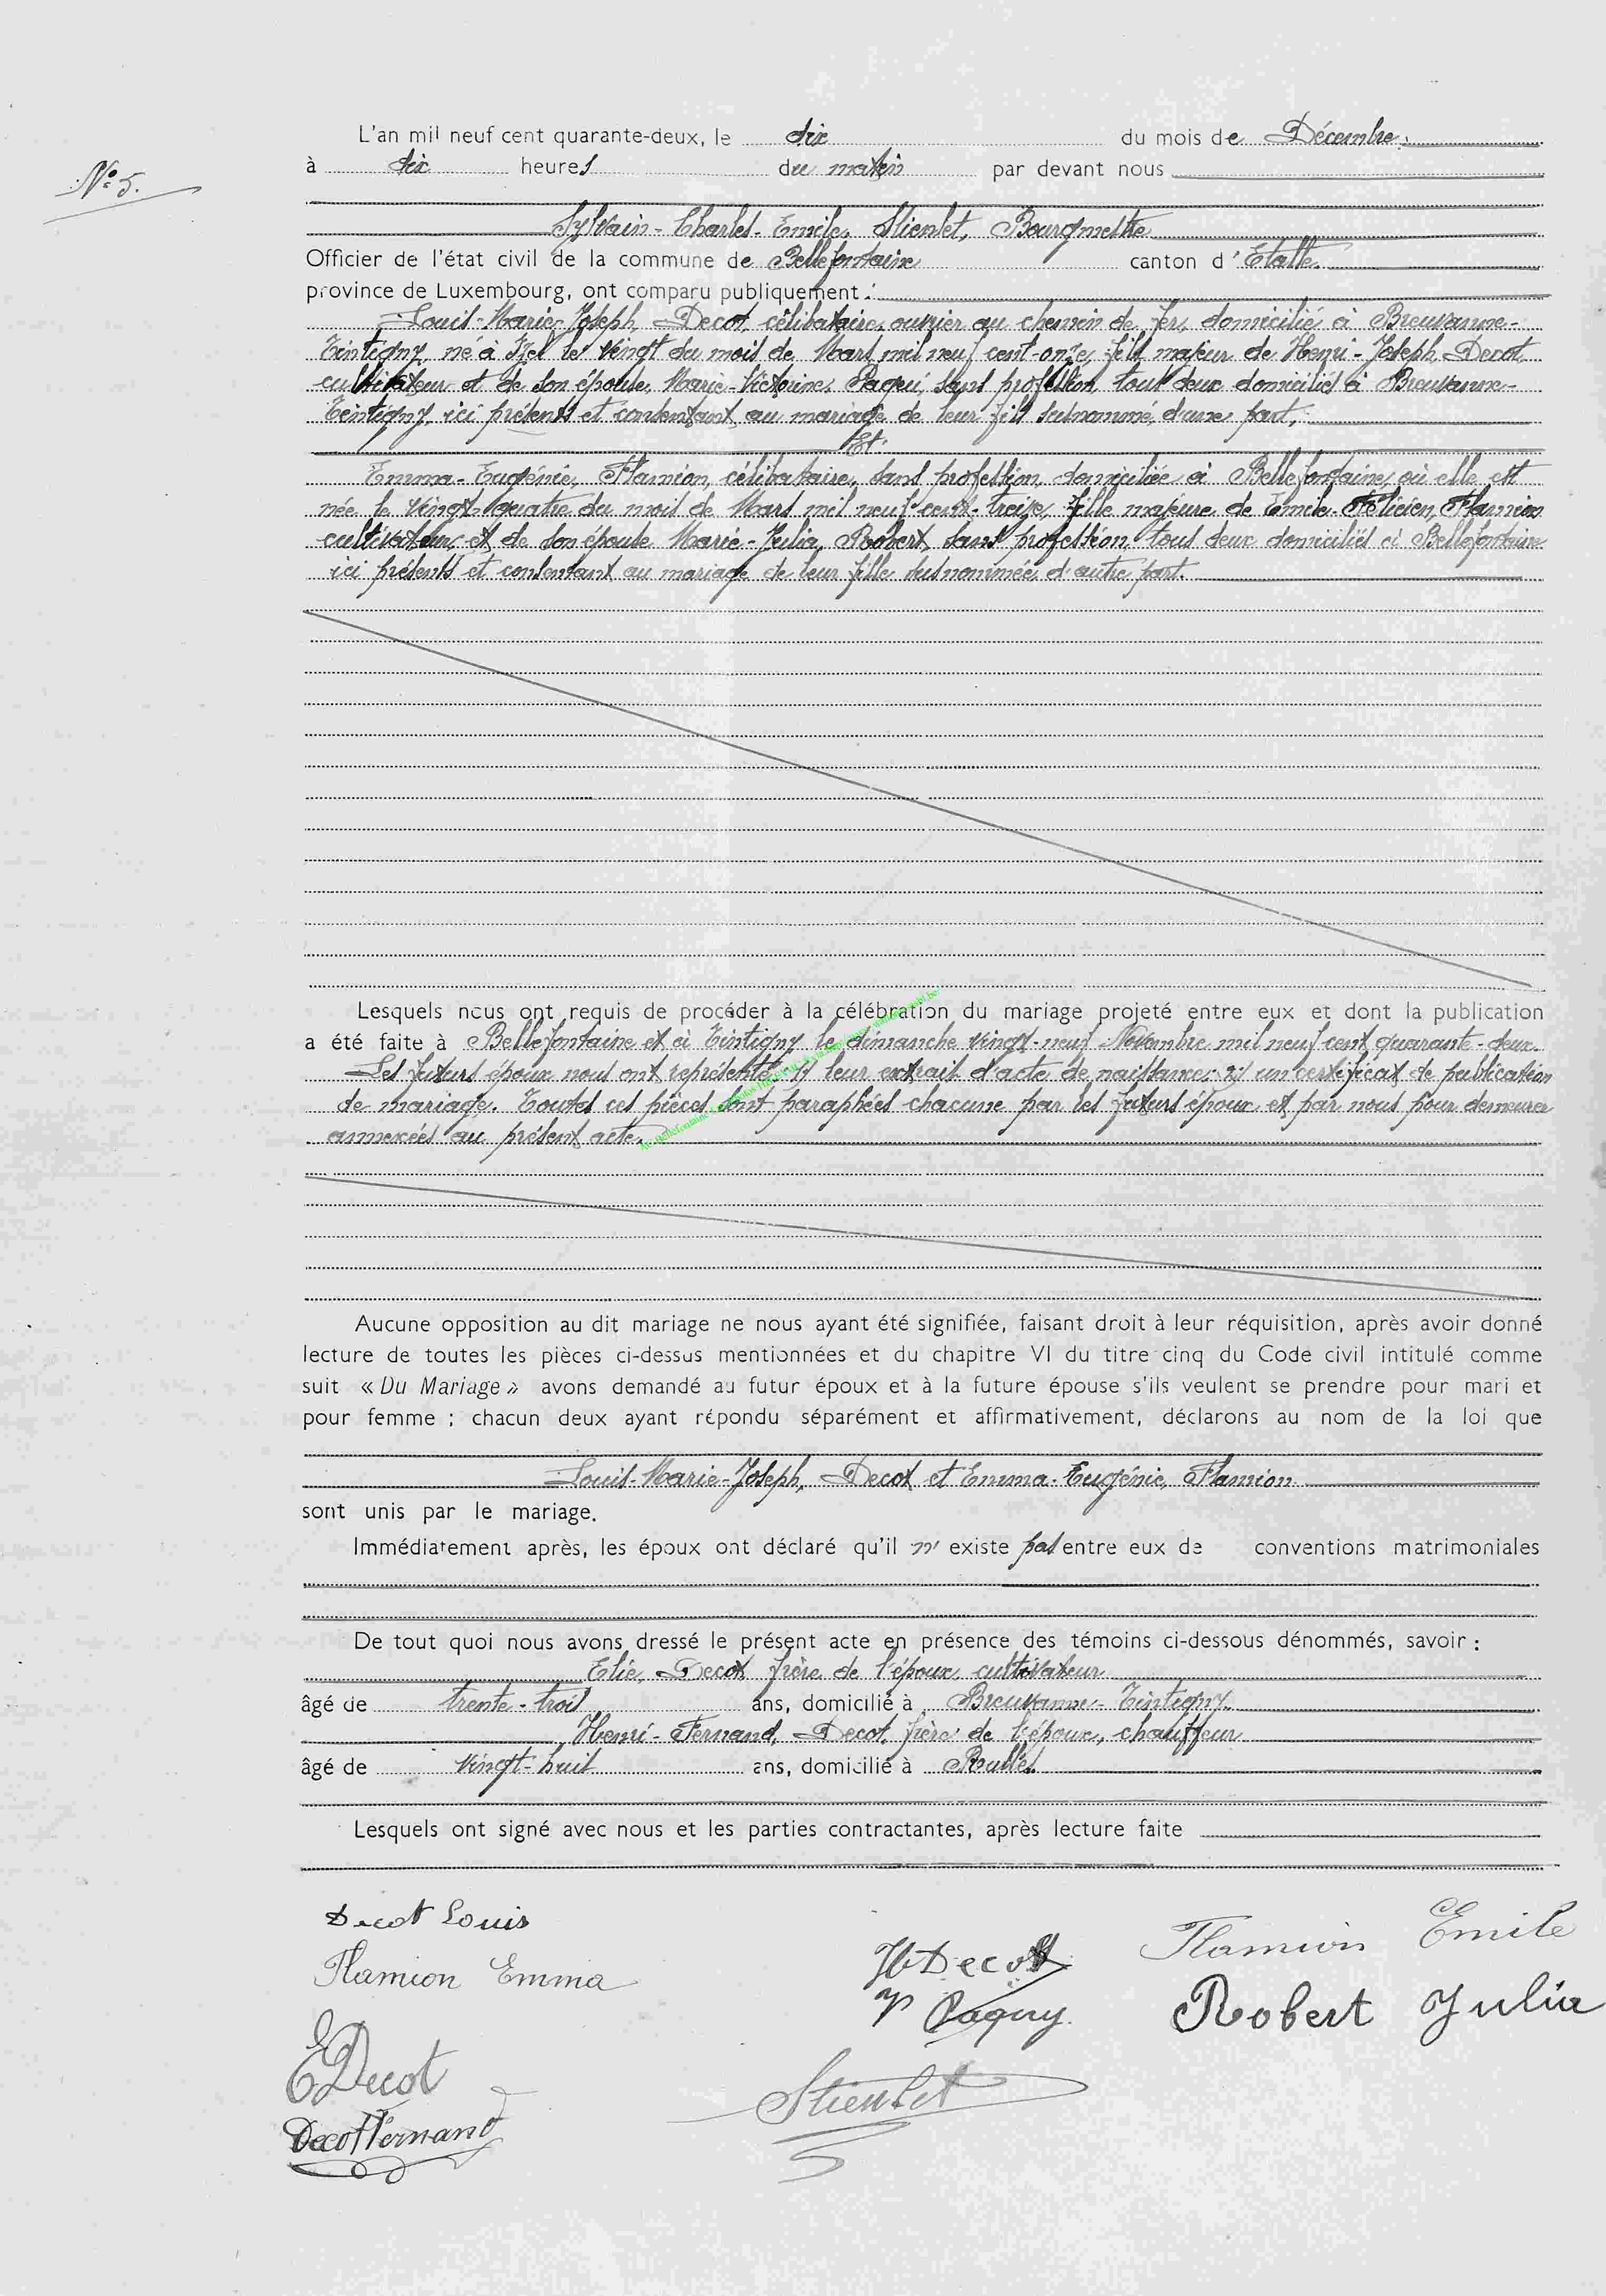 N° 5.
L'an mil neuf cent quarante-deux, le dix du mois de Décembre
à dix heures du matin par devant nous
Sylvain-Charles-Emile, Stienlet, Bourgmestre
Officier de l'état civil de la commune de Bellefontaine canton d'Etalle
province de Luxembourg, ont comparu publiquement :
Louis-Marie-Joseph, Decot, célibataire, ouvrier au chemin de fer, domicilié à Breuvanne-
Tintigny, né à Izel le vingt du mois de Mars mil neuf cent-onze, fils majeur de Henri-Joseph Decot
cultivateur et de son épouse, Marie-Victorine, Paqui, sans profession, tous deux domiciliés à Breuvanne-
Tintigny, ici présents et consentant au mariage de leur fils susnommé, d'une part,
Et
Emma-Eugénie, Flamion, célibataire, sans profession, domiciliée à Bellefontaine, où elle est
née le vingt-quatre du mois de Mars mil neuf cent-treize, fille majeure de Emile-Félicien, Flamion
cultivateur, et de son épouse Marie-Julia, Robert, sans profession, tous deux domiciliés à Bellefontaine
ici présents et consentant au mariage de leur fille susnommée, d'autre part.
Lesquels nous ont requis de procéder à la célébration du mariage projeté entre eux et dont la publication
a été faite à Bellefontaine et à Tintigny le dimanche vingt-neuf Novembre mil neuf cent quarante-deux.
Les futurs époux nous ont représenté: 1) leur extrait d'acte de naissance; 2) un certificat de publication
de mariage. Toutes ces pièces sont paraphées chacune par les futurs époux et par nous pour demeurer
annexées au présent acte.
Aucune opposition au dit mariage ne nous ayant été signifiée, faisant droit à leur réquisition, après avoir donné
lecture de toutes les pièces ci-dessus mentionnées et du chapitre VI du titre cinq du Code civil intitulé comme
suit « Du Mariage » avons demandé au futur époux et à la future épouse s'ils veulent se prendre pour mari et
pour femme ; chacun deux ayant répondu séparément et affirmativement, déclarons au nom de la loi que
Louis-Marie-Joseph, Decot et Emma-Eugénie, Flamion
sont unis par le mariage.
Immédiatement après, les époux ont déclaré qu'il n' existe pas entre eux de conventions matrimoniales
De tout quoi nous avons dressé le présent acte en présence des témoins ci-dessous dénommés, savoir :
Elie, Decot, frère de l'époux, cultivateur
âgé de trente-trois ans, domicilié à Breuvanne-Tintigny.
Henri-Fernand, Decot, frère de l'époux, chauffeur
âgé de vingt-huit ans, domicilié à Rulles
Lesquels ont signé avec nous et les parties contractantes, après lecture faite
Decot Louis
Flamion Emma
H Decot
Flamion Emile
V Paquy
Robert Julia
E Decot
Stienlet
Decot Fernand